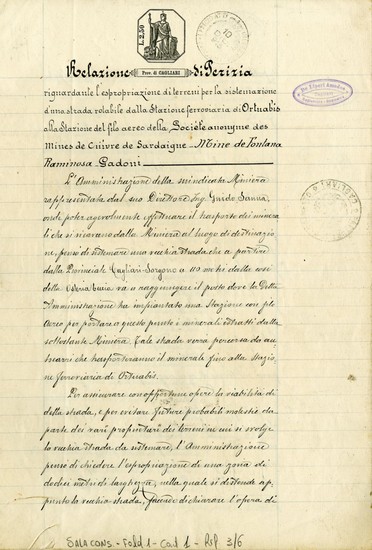 L. 2,50
Relazione di Perizia
Prov. di CAGLIARI
riguardante l'espropriazione di terreni per la sistemazione
d'una strada rotabile dalla Stazione ferroviaria di Ortuabis
alla Stazione del filo aereo della Société anonyme des
Mines de Cuivre de Sardaigne - Mine de Fontana
Raminosa Gadoni
L'Amministrazione della suindicata Miniera
rappresentata dal suo Direttore Ing. Guido Sanna,
onde poter agevolmente effettuare il trasporto dei minera
li che si ricavano dalla Miniera al luogo di destinazio
ne, pensò di sistemare una vecchia strada che a partire
dalla Provinciale Cagliari-Sorgono a 110 m. dalla casa
della va a raggiungere il posto dove la detta
Amministrazione ha impiantato una Stazione con filo
aereo per portare a questo punto i minerali estratti dalla
sottostante Miniera. Tale strada verrà percorsa da au
tocarri che trasporteranno il minerale fino alla Stazio
ne ferroviaria di Ortuabis.
Per assicurare con opportune opere la viabilità di
detta strada, e per evitare future probabili molestie da
parte dei varii proprietari dei terreni in cui si svolge
la vecchia strada da sistemare, l'Amministrazione
pensò di chiedere l'espropriazione di una zona di
dodici metri di larghezza, nella quale si distende ap
punto la vecchia strada, facendo dichiarare l'opera di
SALA CONS. - Fald 1 - Cart 1 - Rif. 3/6